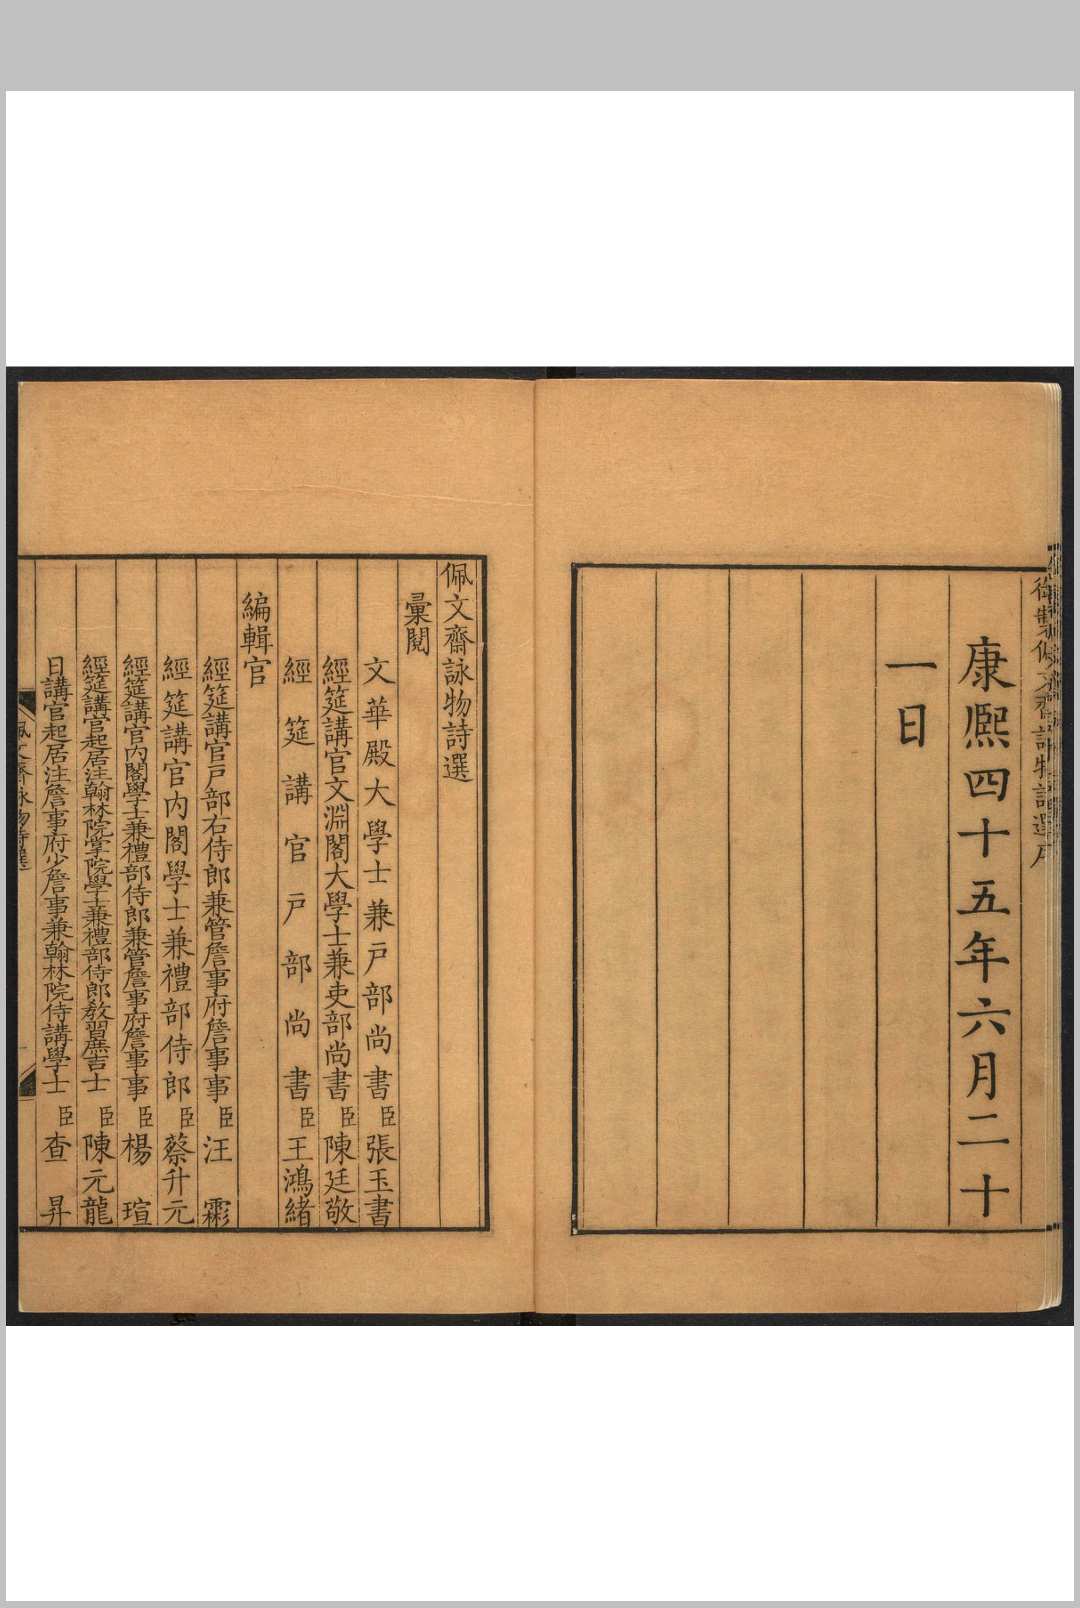 御製佩文齋詠物詩選序
康熙四十五年六月二十
一日
佩文齋詠物詩選
彙閱
文華殿大學士兼戶部尚書臣張玉書
經筵講官文淵閣大學士兼吏部尚書臣陳廷敬
經筵講官戶部尚書臣王鴻緒
編輯官
經筵講官戶部右侍郎兼管詹事府詹事事臣汪霦
經筵講官內閣學士兼禮部侍郎臣蔡升元
經筵講官內閣學士兼禮部侍郎兼管詹事府詹事事臣楊瑄
經筵講官起居注翰林院掌院學士兼禮部侍郎教習庶吉士臣陳元龍
日講官起居注詹事府少詹事兼翰林院侍講學士臣查昇
佩文齋詠物詩選